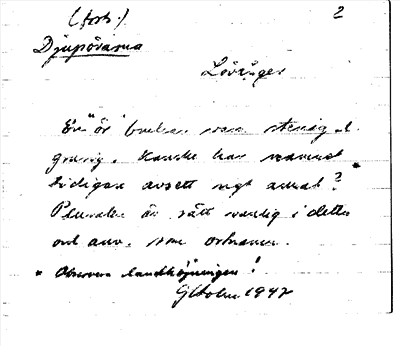 (forts.) 2
Djupörarna
Lövånger
En "ör" brukar vara stenig el.
grusig. Kanske har namnet
tidigare avsett ngt annat? *
Pluralen är rätt vanlig i detta
ord anv. som ortnamn.
* Observera landhöjningen!
GHolm 1942